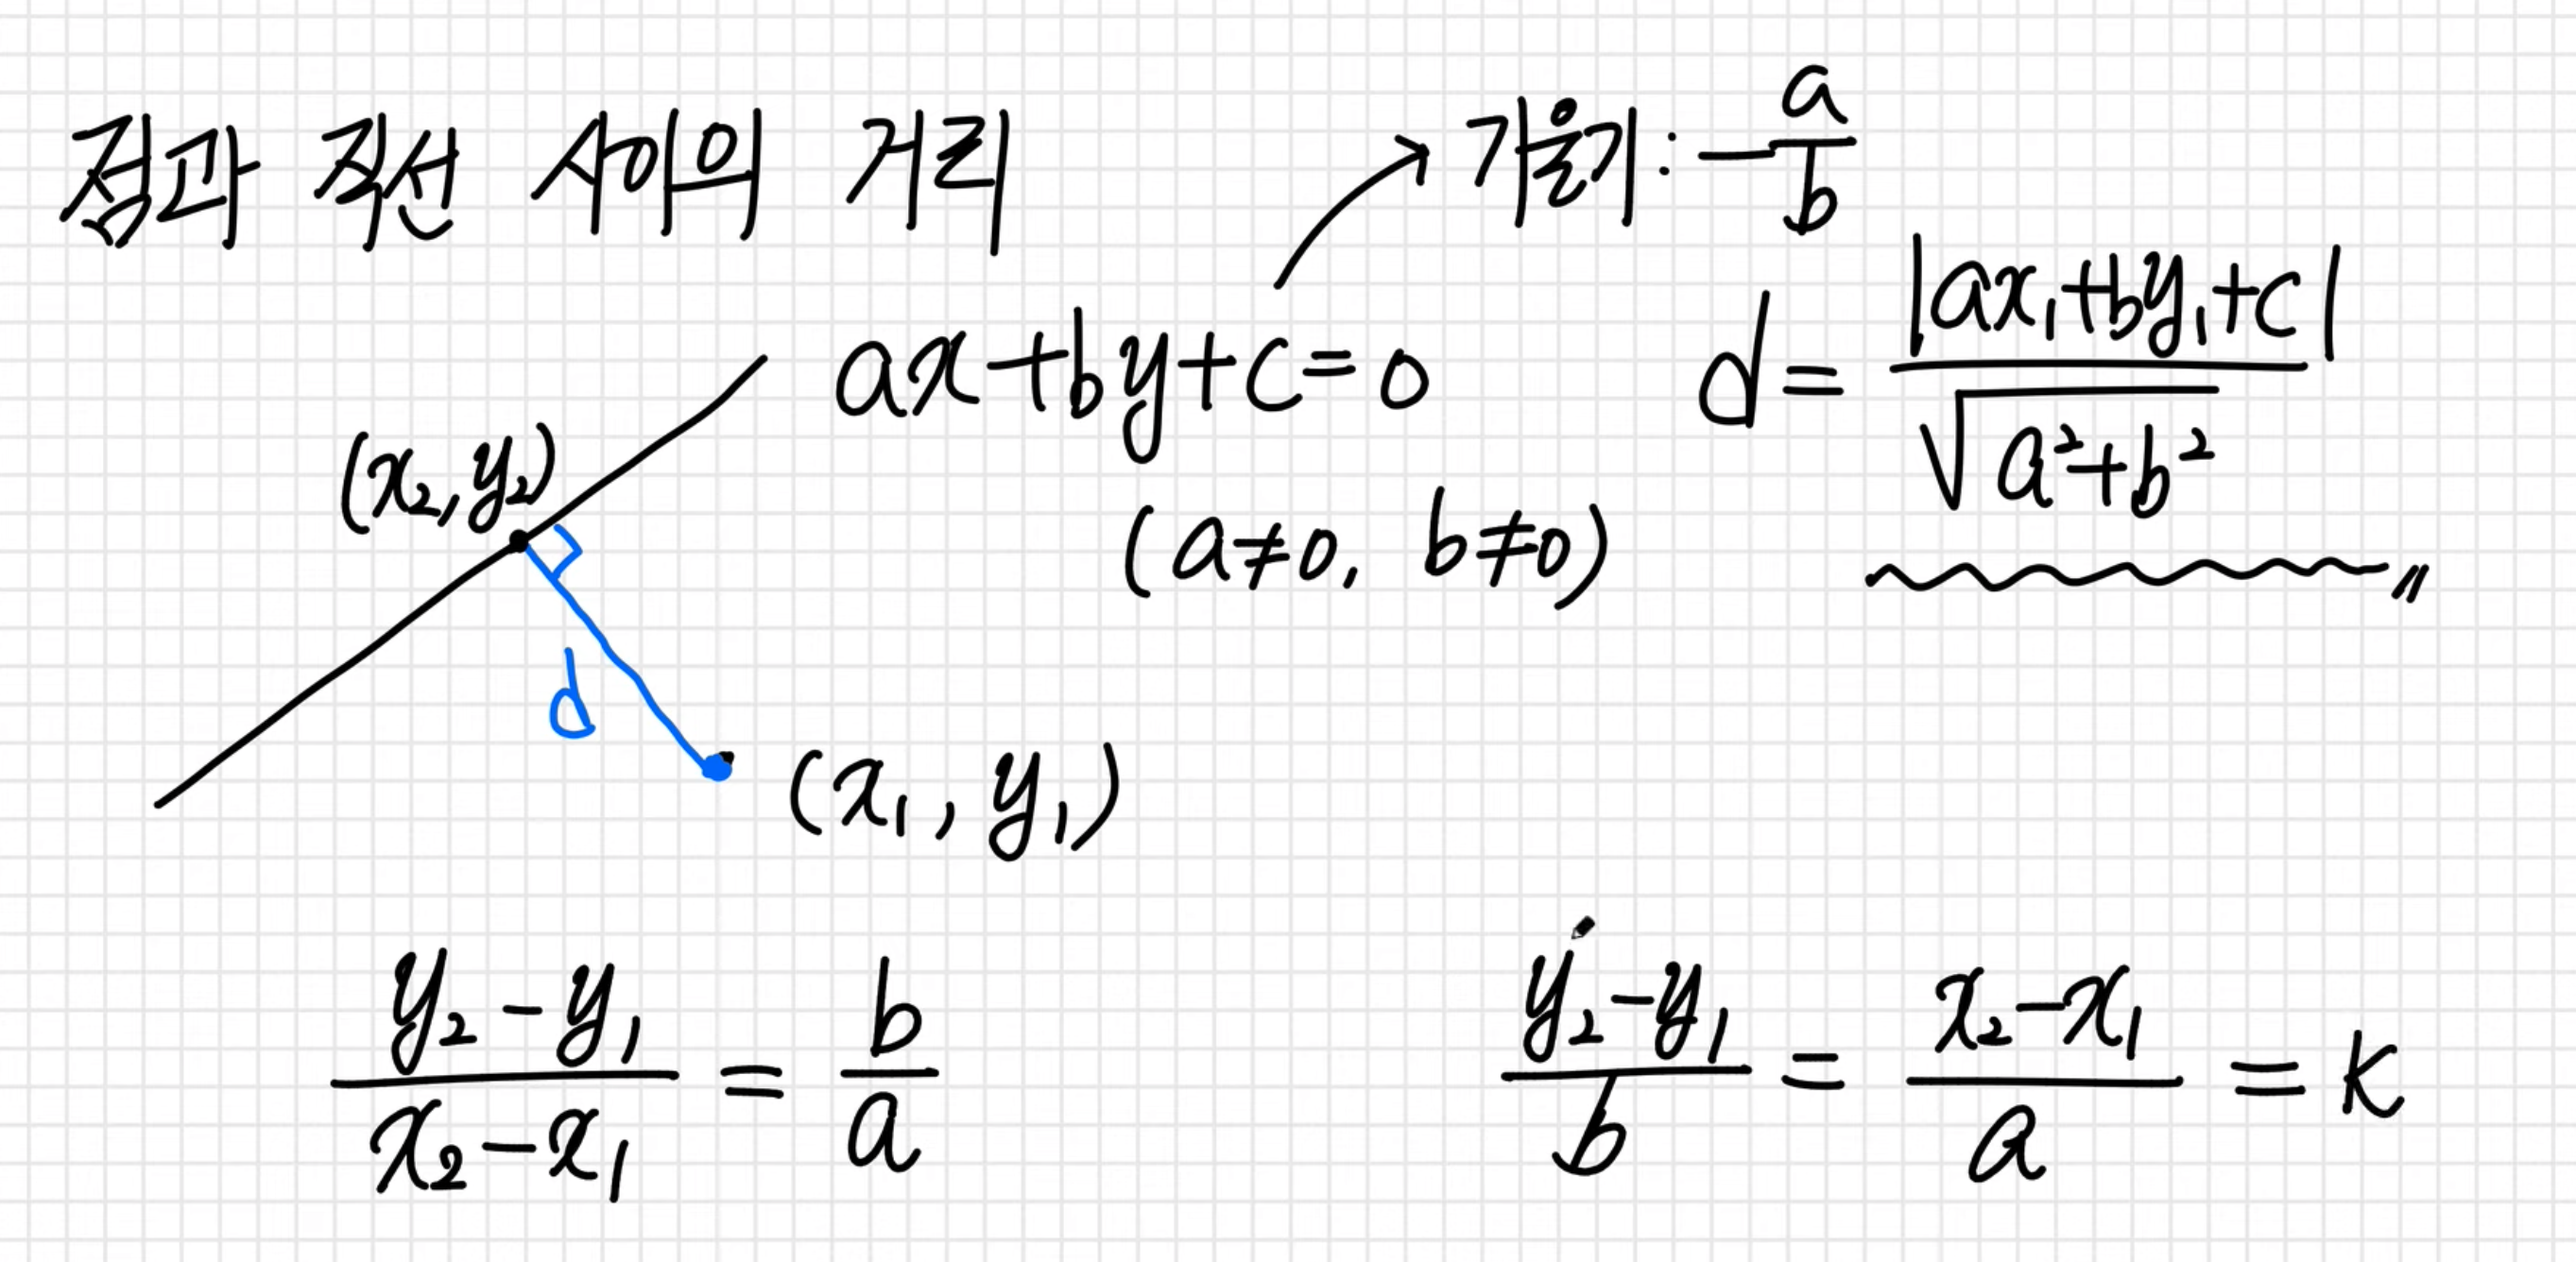 점과 직선 사이의 거리
기울기: -a/b
ax+by+c=0
d=|ax₁+by₁+c|/√a²+b²
(x₂,y₂)
(a≠0, b≠0)
d
(x₁, y₁)
y₂-y₁/x₂-x₁ = b/a
y₂-y₁/b = x₂-x₁/a = k